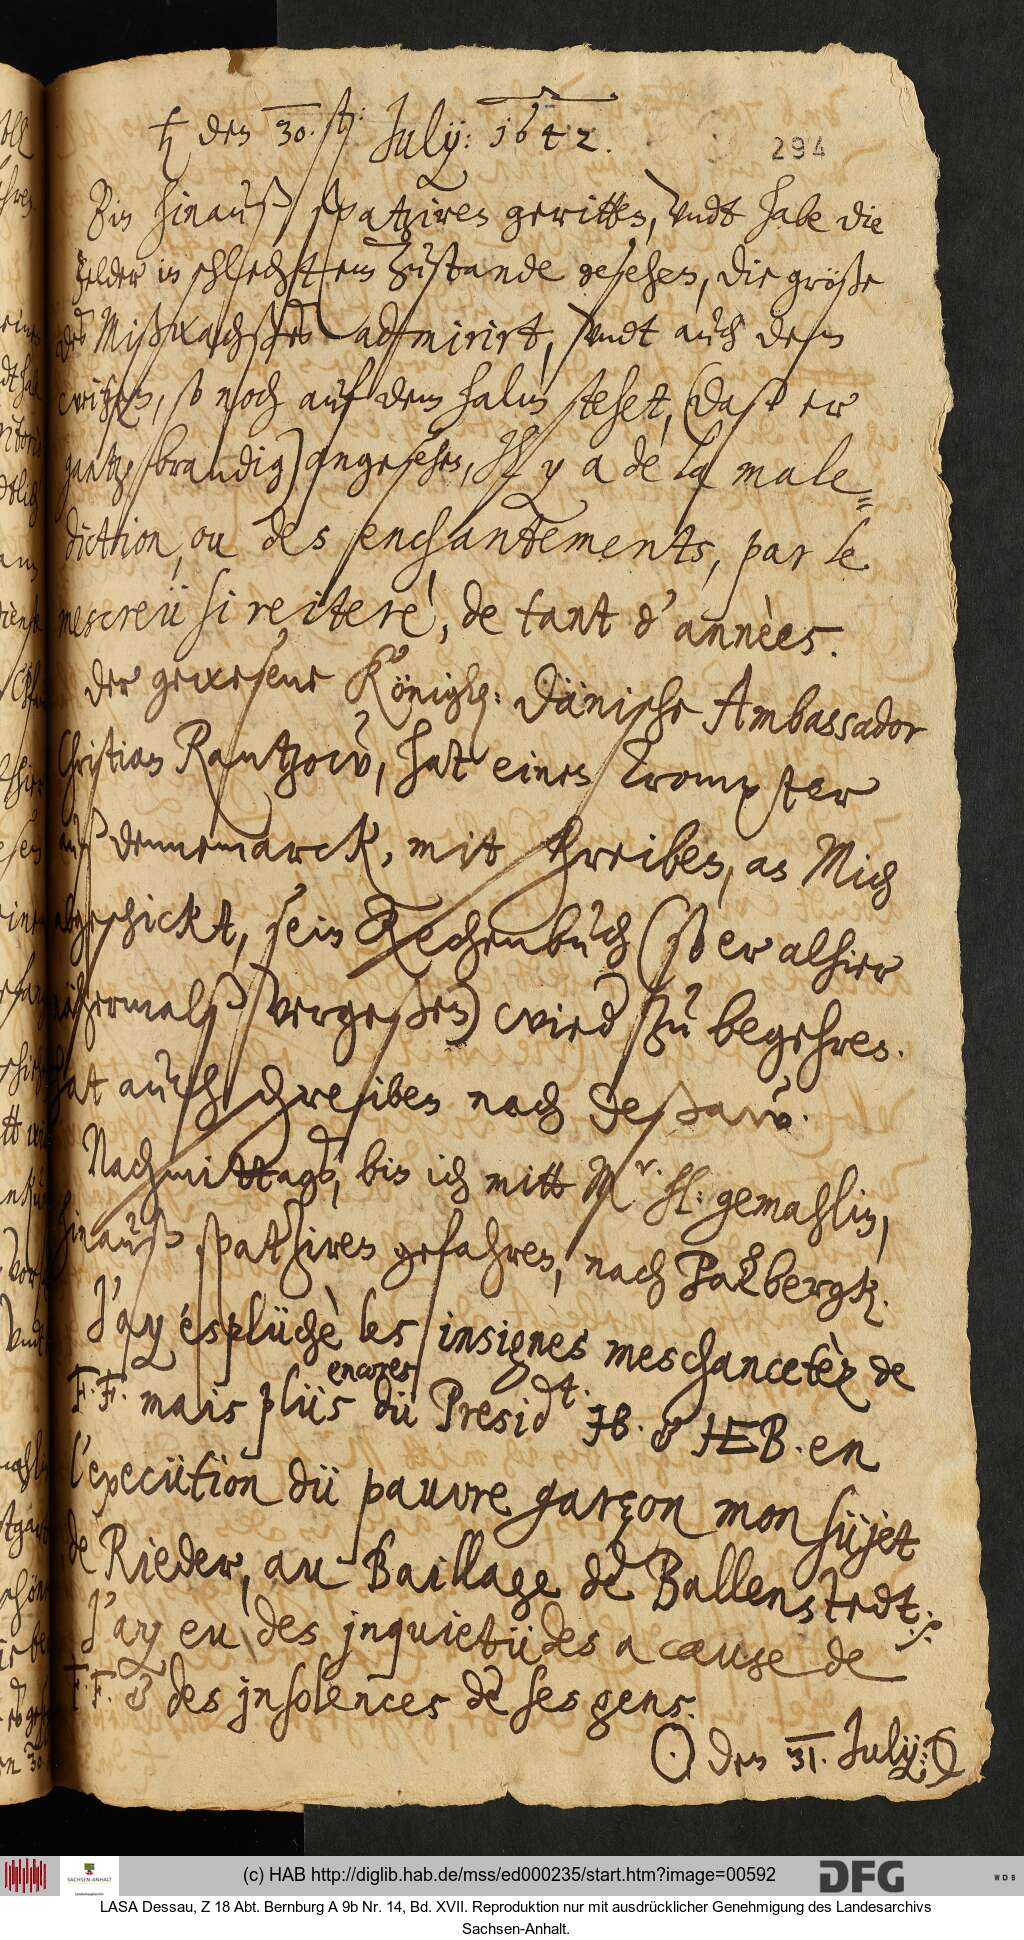 ♄ den 30. st: Julij: 1642.
294
Bin hinauß spatziren geritten, vndt habe die
felder in schlechtem zustande gesehen, die größe
des Mißwachßes admirirt, vndt auch den
weitzen, so noch auf dem halm stehet, (daß er
gantz brandig) angesehen, Il y a de la male=
diction, ou des enchantements, par le
mescreü si reiteré, de tant d'annèes.
Der gewesene Königl: Dänische Ambassador
Christian Rantzow, hat einen Trompter
auß Dennemarck, mit schreiben, an Mich
abgeschickt, sein Rechenbuch (so er alhier
nähermalß vergeßen) wied zu begehren.
hat auch schreiben nach Deßaw.
Nachmittags, bin ich mitt Mr. hl: gemahlin,
hinauß spatziren gefahren, nach Palbergk.
J'ay ésplüchè les insignes meschancetèz de
F. F. mais plüs encores dü Presidt. HB. & HEB. en
l'execütion dü pauvre garçon mon süjet
de Rieder, au Baillage de Ballenstedt.
J'ay eu des jnquietüdes a cause de
F. F. & des jnsolences de ses gens.
☉ den 31. Julij:
(c) HAB http://diglib.hab.de/mss/ed000235/start.htm?image=00592
SACHSEN-ANHALT
DFG
WDB
LASA Dessau, Z 18 Abt. Bernburg A 9b Nr. 14, Bd. XVII. Reproduktion nur mit ausdrücklicher Genehmigung des Landesarchivs
Sachsen-Anhalt.